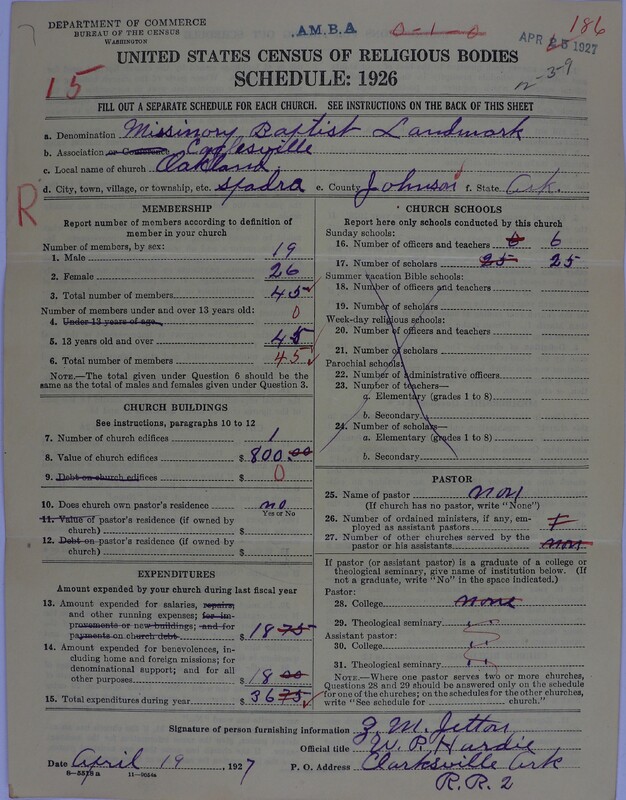 DEPARTMENT OF COMMERCE
BUREAU OF THE CENSUS
WASHINGTON
A.M.B.A
0-1-0
186
APR 1927
n-3-9
15
UNITED STATES CENSUS OF RELIGIOUS BODIES
SCHEDULE: 1926
FILL OUT A SEPARATE SCHEDULE FOR EACH CHURCH. SEE INSTRUCTIONS ON THE BACK OF THIS SHEET
a. Denomination Missinory Baptist Landmark
b. Association or Conference Eaglesville
c. Local name of church Oakland
d. City, town, village, or township, etc. Spadra e. County Johnson f. State Ark.
R
MEMBERSHIP
Report number of members according to definition of member in your church
Number of members, by sex:
1. Male 19
2. Female 26
3. Total number of members 45
Number of members under and over 13 years old:
4. Under 13 years of age 0
5. 13 years old and over 45
6. Total number of members 45
NOTE.—The total given under Question 6 should be the same as the total of males and females given under Question 3.
CHURCH BUILDINGS
See instructions, paragraphs 10 to 12
7. Number of church edifices 1
8. Value of church edifices $ 800.00
9. Debt on church edifices $ 0
10. Does church own pastor's residence no
Yes or No
11. Value of pastor's residence (if owned by church) $
12. Debt on pastor's residence (if owned by church) $
EXPENDITURES
Amount expended by your church during last fiscal year
13. Amount expended for salaries, repairs, and other running expenses; for improvements or new buildings; and for payments on church debt $ 18 75
14. Amount expended for benevolences, including home and foreign missions; for denominational support; and for all other purposes $ 18 00
15. Total expenditures during year $ 36 75
CHURCH SCHOOLS
Report here only schools conducted by this church
Sunday schools:
16. Number of officers and teachers 6 6
17. Number of scholars 25 25
Summer vacation Bible schools:
18. Number of officers and teachers
19. Number of scholars
Week-day religious schools:
20. Number of officers and teachers
21. Number of scholars
Parochial schools:
22. Number of administrative officers
23. Number of teachers—
a. Elementary (grades 1 to 8)
b. Secondary
24. Number of scholars—
a. Elementary (grades 1 to 8)
b. Secondary
PASTOR
25. Name of pastor non
(If church has no pastor, write "None")
26. Number of ordained ministers, if any, employed as assistant pastors
27. Number of other churches served by the pastor or his assistants non
If pastor (or assistant pastor) is a graduate of a college or theological seminary, give name of institution below. (If not a graduate, write "No" in the space indicated.)
Pastor:
28. College none
29. Theological seminary
Assistant pastor:
30. College
31. Theological seminary
NOTE.—Where one pastor serves two or more churches, Questions 28 and 29 should be answered only on the schedule for one of the churches; on the schedules for the other churches, write "See schedule for church."
Signature of person furnishing information Z. M. Jetton
Official title W. P. Hurdie
Date April 19, 1927 P. O. Address Clarksville Ark
R.R. 2
8—5518 a 11—9054a